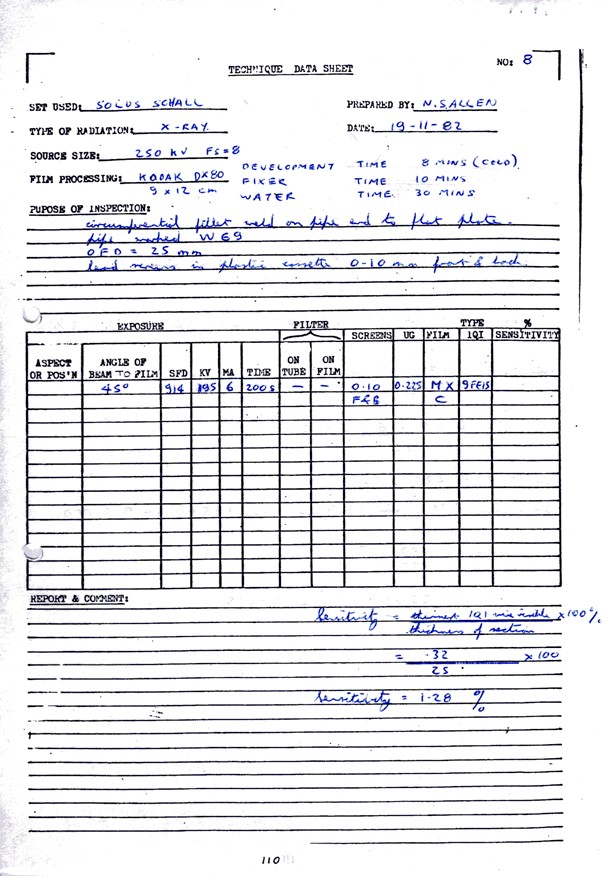 NO: 8
TECHNIQUE DATA SHEET
SET USED: SOLUS SCHALL
PREPARED BY: N.S ALLEN
TYPE OF RADIATION: X-RAY.
DATE: 19-11-82
SOURCE SIZE: 250 KV FS=8
FILM PROCESSING: KODAK DX80
9 x 12 cm
DEVELOPMENT TIME 8 MINS (COLD).
FIXER TIME 10 MINS
WATER TIME. 30 MINS
PUPOSE OF INSPECTION:
circumferential fillet weld on pipe end to flat plate.
pipe marked W69
OFD = 25 mm
lead screens in plastic cassette 0-10 mm front & back.
EXPOSURE FILTER TYPE %
SCREENS UG FILM IQI SENSITIVITY
ASPECT OR POS'N ANGLE OF BEAM TO FILM SFD KV MA TIME ON TUBE ON FILM
45° 914 195 6 200s — — 0.10 0.225 MX 9FE15
F&B C
REPORT & COMMENT:
Sensitivity = thinnest IQI wire visible x 100%
thickness of section
= .32 x 100
25
Sensitivity = 1.28 %
110